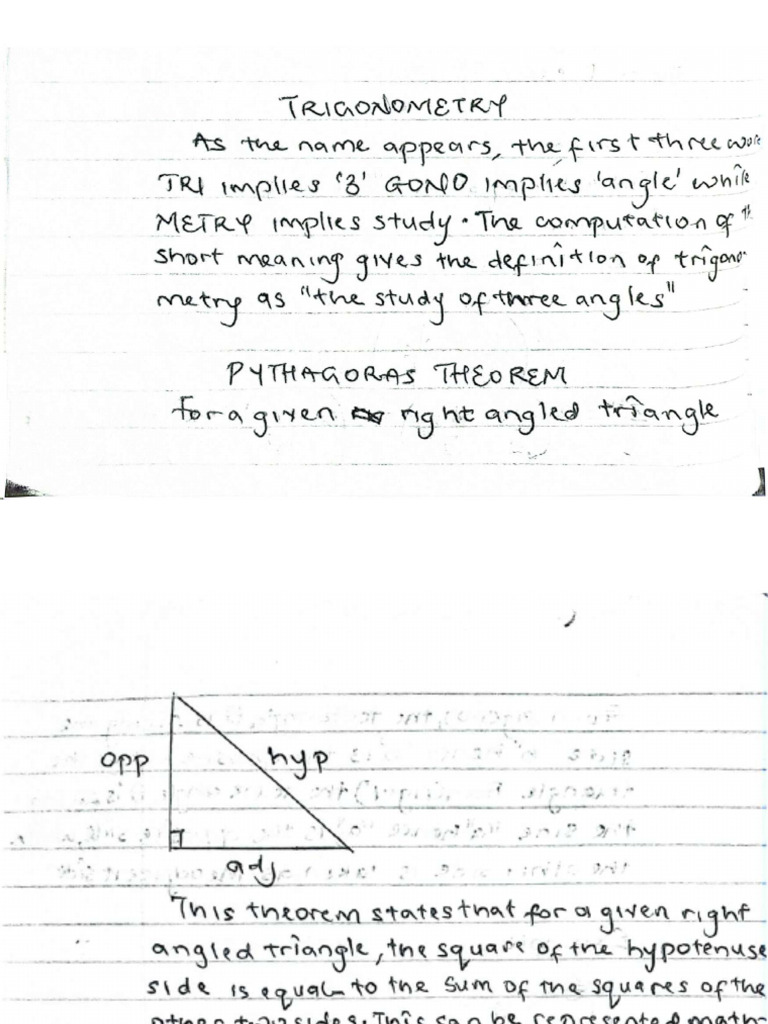 TRIGONOMETRY
As the name appears, the first three
TRI implies '3' GONO implies 'angle' while
METRY implies study. The computation of
short meaning gives the definition of trigono-
metry as "the study of three angles"
PYTHAGORAS THEOREM
for a given right angled triangle
opp hyp
adj
This theorem states that for a given right
angled triangle, the square of the hypotenuse
side is equal to the sum of the squares of the
other two sides. This can be represented math-